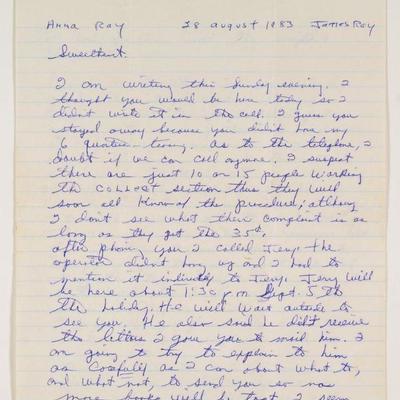 Anna Ray 28 august 1983 James Ray
Sweetheart.
I am writing this Sunday evening. I
thought you would be here today so I
didnt write it in the cell. I guess you
stayed away because you didn't have my
6 as to the telephone, I
doubt if we can call anymore. I suspect
there are just 10 or 15 people working
the COLLECT section thus they will
soon all know of the procedure; althoug
I don't see what their complaint is as
long as they get the 35¢.
after phoning you I called Jerry. the
operator didnt hang up and I had to
mention it indirectly to Jerry. Jerry will
be here about 1:30 pm Sept. 5th
the holiday. He will wait outside to
see you. He also said he didn't receive
the letters I gave you to mail him. I
am going to try to explain to him
as carefully as I can about what to,
and what not, to send you so no
more books will be lost. I seem